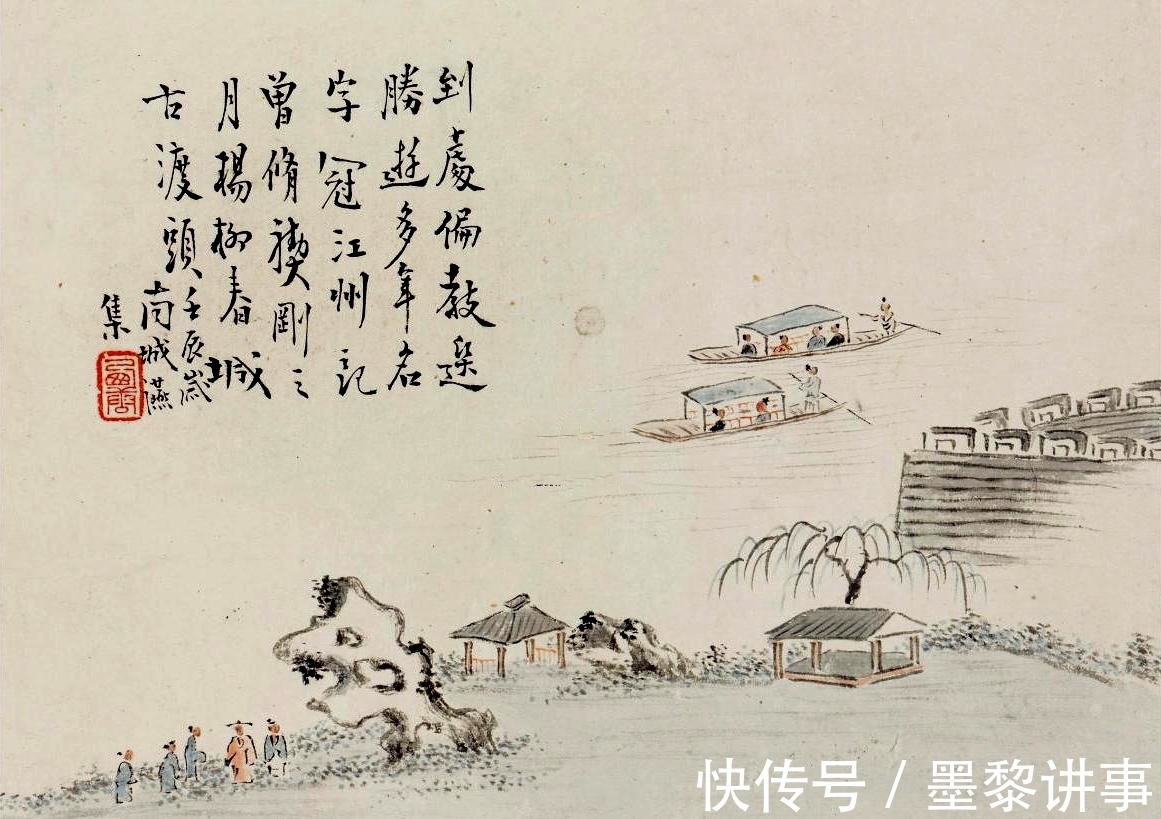 到處偏教選
勝遊多年名
字冠江州記
曾脩禊剛三
月楊柳春城
古渡頭壬辰歲
南城讌
集
快传号 / 墨黎讲事